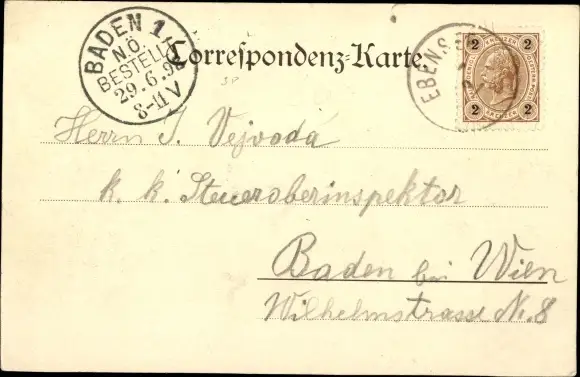 BADEN 1
N.Ö.
BESTELLT
29.6.9
8-11 V
Correspondenz-Karte.
EBENS
2 2
2 2
KREUZER
SP
Herrn I. Vejvoda
k. k. Steueroberinspektor
Baden bei Wien
Wilhelmstrasse Nr. 8